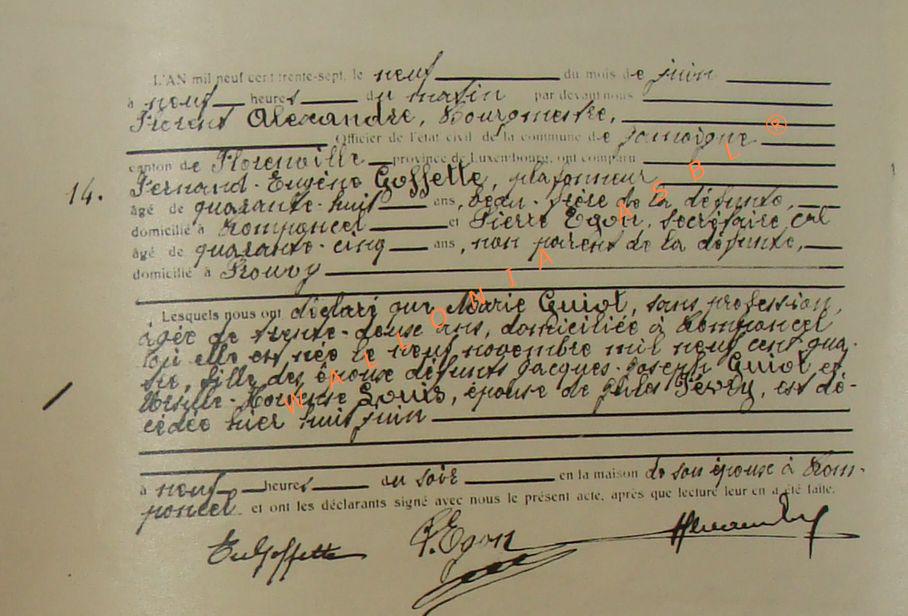 L'AN mil neuf cent trente-sept, le neuf du mois de juin
à neuf heures du matin par devant nous
Florent Alexandre, Bourgmestre,
Officier de l'état civil de la commune de Jamoigne
canton de Florenville province de Luxembourg, ont comparu
14. Fernand-Eugène Goffette, plafonneur
âgé de quarante-huit ans, beau-frère de la défunte,
domicilié à Romponcel et Pierre Egon, secrétaire cal
âgé de quarante-cinq ans, non parent de la défunte,
domicilié à Rouvy
Lesquels nous ont déclaré que Marie Guiot, sans profession,
âgée de trente-deux ans, domiciliée à Romponcel
où elle est née le neuf novembre mil neuf cent qua-
tre, fille des épouse défunts Jacques-Joseph Guiot et
Louis, épouse de Jules Févry, est dé-
cédée hier huit juin
à neuf heures au soir en la maison de son épouse à Rom-
poncel et ont les déclarants signé avec nous le présent acte, après que lecture leur en a été faite.
P. Egon
WALLONIA ASBL ®